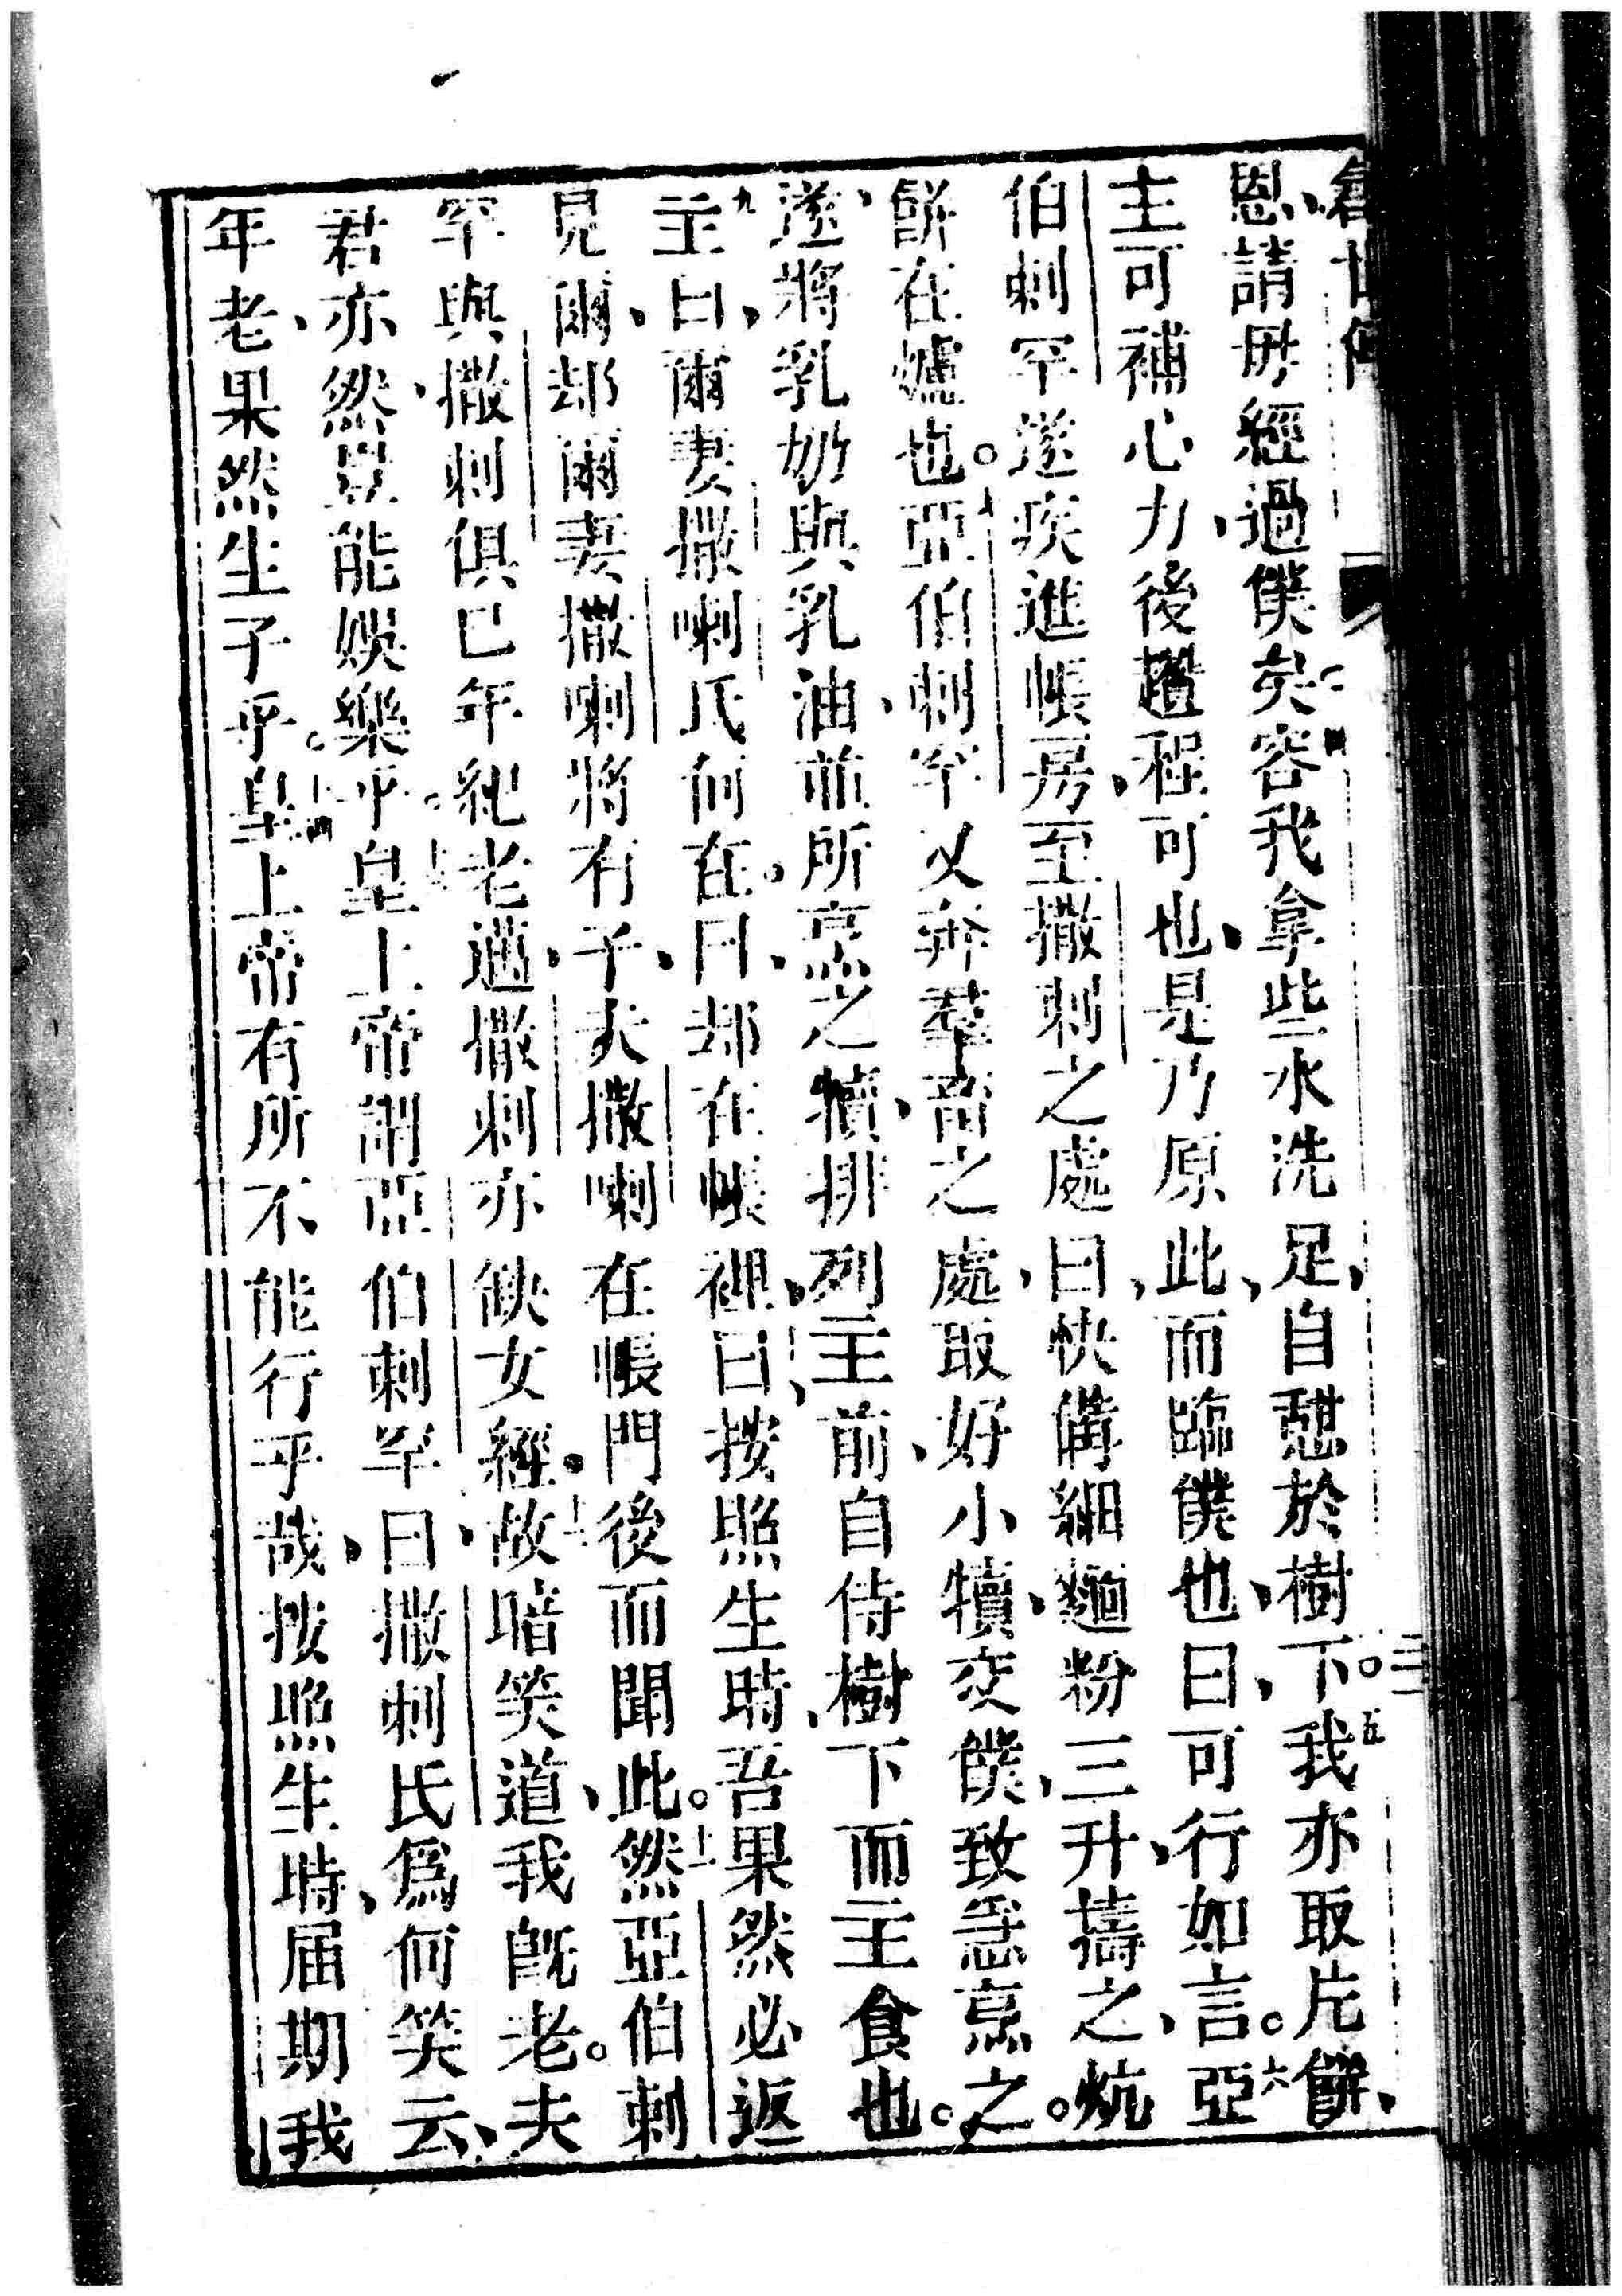 恩、請毋經過僕矣四容我拿些水洗足、自憇於樹下。五我亦取片餅、
主可補心力、後趲程可也、是乃原此、而臨僕也、曰、可行如言。六亞
伯剌罕遂疾進帳房、至撒剌之處、曰、快備細麵粉三升、擣之、炕
餅在爐也。七亞伯剌罕又奔羣畜之處、取好小犢、交僕、致急烹之。
遂將乳奶與乳油、並所烹之犢、排列主前、自侍樹下而主食也。
九主曰、爾妻撒喇氏何在、曰、却在帳裡、曰、按照生時、吾果然必返
見爾、却爾妻撒喇將有子、夫撒喇在帳門後而聞此。十一然亞伯剌
罕與撒剌俱已年紀老邁、撒剌亦缺女經。故暗笑道、我旣老。夫
君亦然、豈能娛樂乎。皇上帝謂亞伯剌罕曰、撒剌氏爲何笑云、
年老、果然生子乎。十四皇上帝有所不能行乎哉、按照生時、届期我